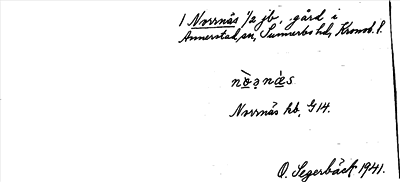 1 Norrnäs 1/2 jb, gård i
Annerstad sn, Sunnerbo hd, Kronob. l.
nò̤ə̣nǽs
Norrnäs kb, G 14.
O. Segerbäck 1941.